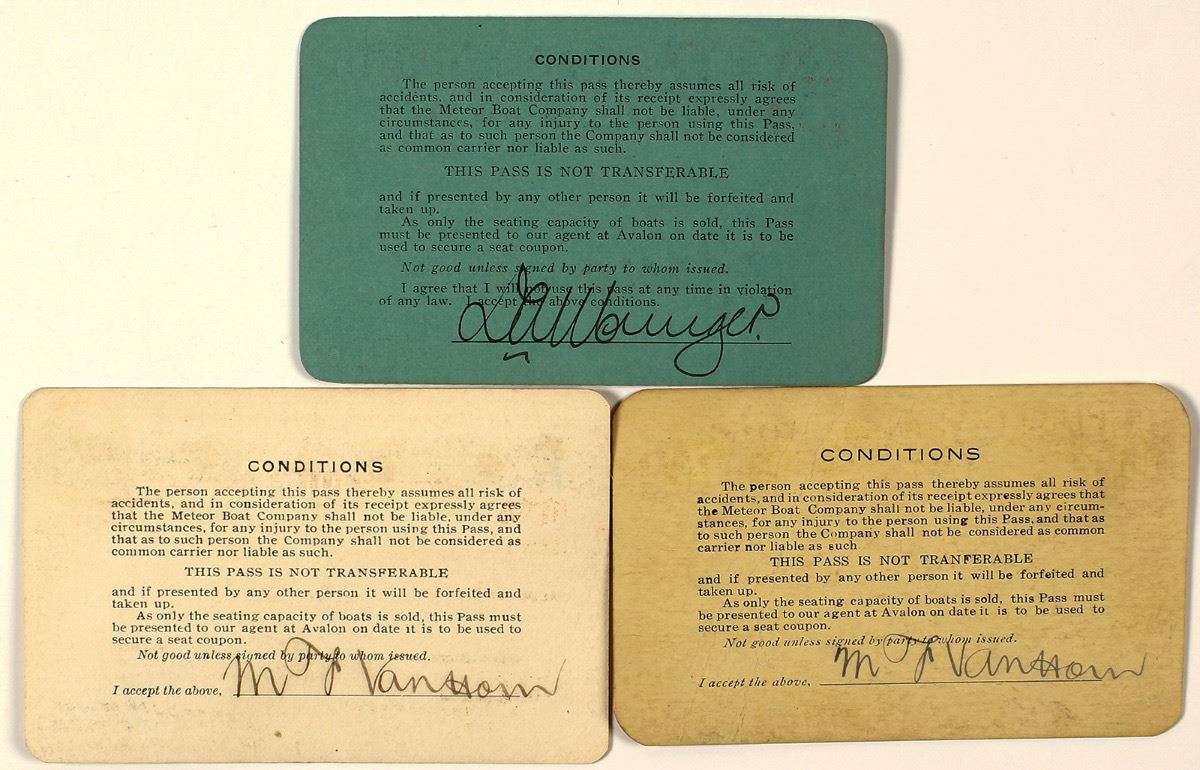 CONDITIONS
The person accepting this pass thereby assumes all risk of
accidents, and in consideration of its receipt expressly agrees
that the Meteor Boat Company shall not be liable, under any
circumstances, for any injury to the person using this Pass,
and that as to such person the Company shall not be considered
as common carrier nor liable as such.
THIS PASS IS NOT TRANSFERABLE
and if presented by any other person it will be forfeited and
taken up.
As only the seating capacity of boats is sold, this Pass
must be presented to our agent at Avalon on date it is to be
used to secure a seat coupon.
Not good unless signed by party to whom issued.
I agree that I will not use this pass at any time in violation
of any law. I accept the above conditions.
CONDITIONS
The person accepting this pass thereby assumes all risk of
accidents, and in consideration of its receipt expressly agrees
that the Meteor Boat Company shall not be liable, under any
circumstances, for any injury to the person using this Pass, and
that as to such person the Company shall not be considered as
common carrier nor liable as such.
THIS PASS IS NOT TRANSFERABLE
and if presented by any other person it will be forfeited and
taken up.
As only the seating capacity of boats is sold, this Pass must
be presented to our agent at Avalon on date it is to be used to
secure a seat coupon.
Not good unless signed by party to whom issued.
I accept the above, M F VanHorn
CONDITIONS
The person accepting this pass thereby assumes all risk of
accidents, and in consideration of its receipt expressly agrees that
the Meteor Boat Company shall not be liable, under any circum-
stances, for any injury to the person using this Pass, and that as
to such person the Company shall not be considered as common
carrier nor liable as such
THIS PASS IS NOT TRANFERABLE
and if presented by any other person it will be forfeited and
taken up.
As only the seating capacity of boats is sold, this Pass must
be presented to our agent at Avalon on date it is to be used to
secure a seat coupon.
Not good unless signed by party to whom issued.
I accept the above, M F VanHorn